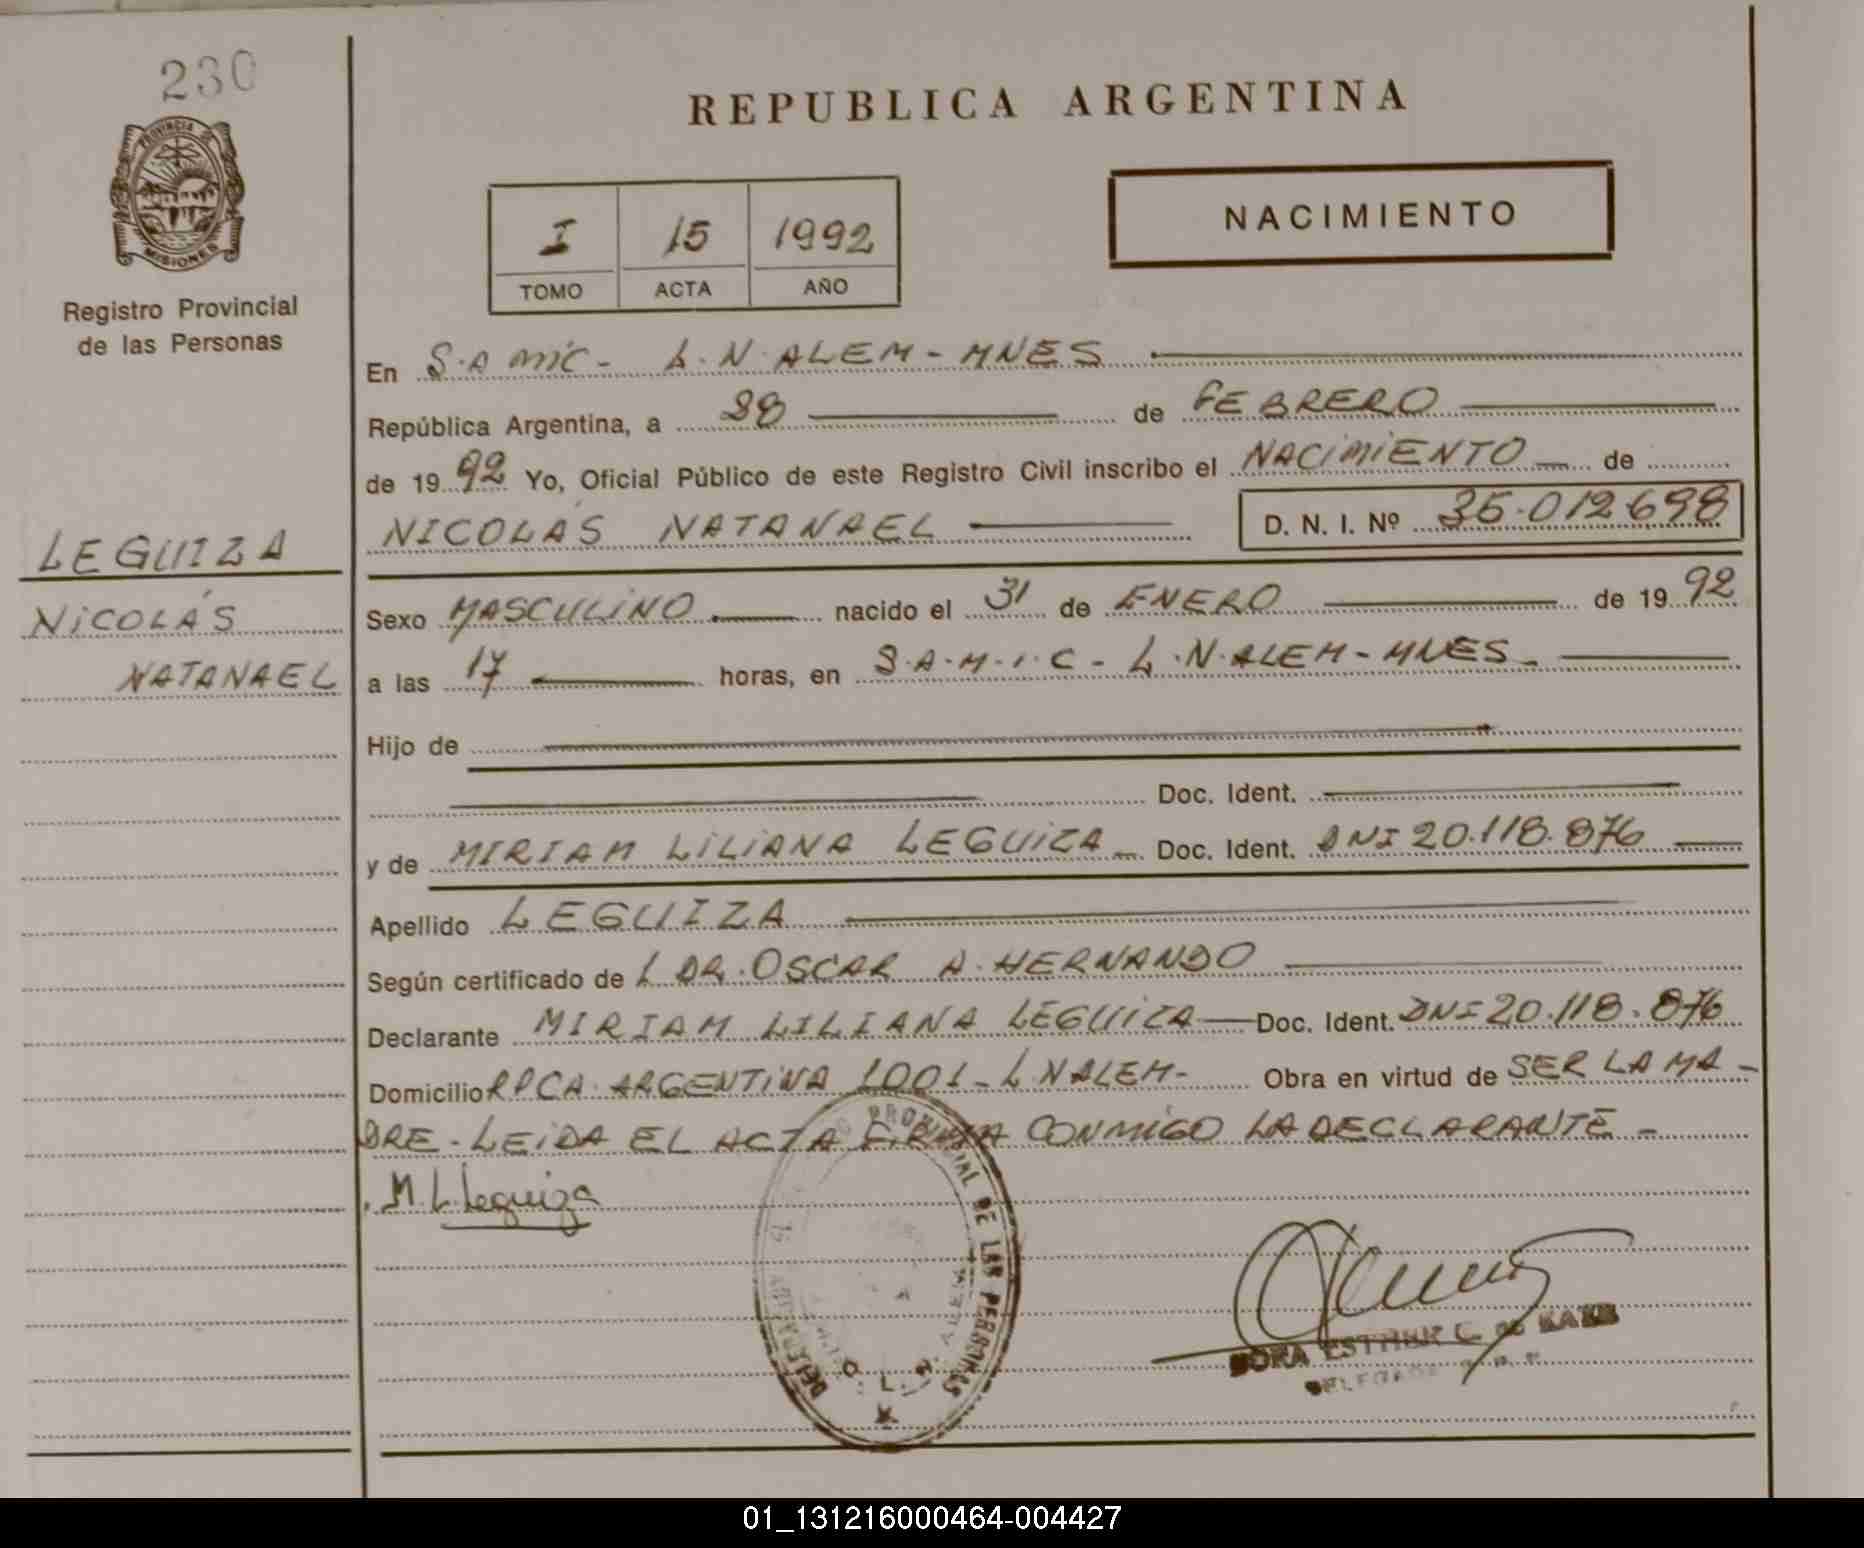 230
PROVINCIA DE
MISIONES
Registro Provincial
de las Personas
REPUBLICA ARGENTINA
I 15 1992
TOMO ACTA AÑO
NACIMIENTO
En S.A MIC - L.N.ALEM - MNES
República Argentina, a 28 de FEBRERO
de 19 92 Yo, Oficial Público de este Registro Civil inscribo el NACIMIENTO de
NICOLÁS NATANAEL D. N. I. Nº 36.012698
LEGUIZA
NICOLÁS
NATANAEL
Sexo MASCULINO nacido el 31 de ENERO de 19 92
a las 17 horas, en S.A.M.I.C - L.N.ALEM - MNES
Hijo de
Doc. Ident.
y de MIRIAM LILIANA LEGUIZA Doc. Ident. DNI 20.118.876
Apellido LEGUIZA
Según certificado de L DR. OSCAR A. HERNANDO
Declarante MIRIAM LILIANA LEGUIZA Doc. Ident. DNI 20.118.876
Domicilio RPCA. ARGENTINA 1001 - L.N ALEM - Obra en virtud de SER LA MA -
DRE - LEIDA EL ACTA FIRMA CONMIGO LA DECLARANTE -
M. L. Leguiza
PROVINCIAL DE LAS PERSONAS
ESTHER C. DE
01_131216000464-004427